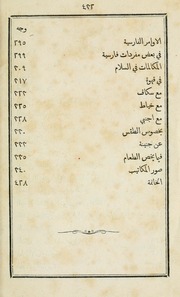 ٤٤٣
وجه
الاوامر الفارسية ٢٩٥
في بعض مفردات فارسية ٢٩٩
المكالمات في السلام ٣٠٩
في قهوة ٣١٧
مع سكاف ٣٢٢
مع خياط ٣٢٥
مع اجنبي ٣٢٨
بخصوص الطقس ٣٣٠
عن جنينة ٣٣٢
فيما يختص الطعام ٣٣٥
صور المكاتيب ٣٤٠
الخاتمة ٤٣٨